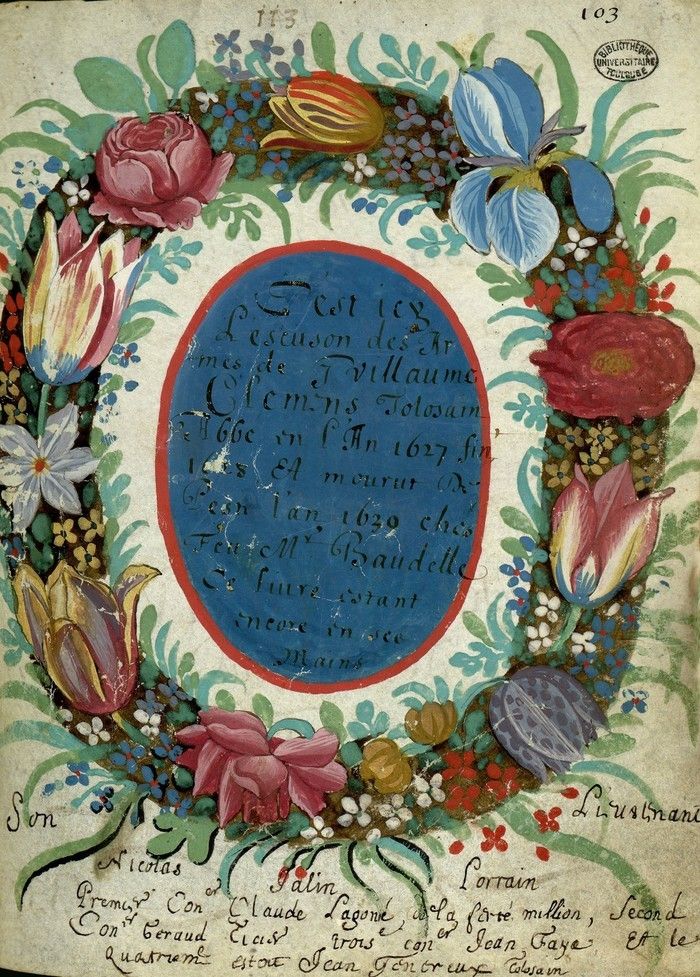 113
103
BIBLIOTHÈQUE
UNIVERSITAIRE
TOULOUSE
C'est icy
Lescuson des Ar
mes de Gvillaume
Clemens Tolosain
Abbe en l'An 1627 fin
1628 Et mourut De
Pesn l'an 1630 ches
Feu Mr Baudelle
Ce livre estant
encore en ses
Mains
Son Lieutenant
Nicolas Jalin Lorrain
Premier Coner Claude Lagoné de la ferté million, Second
Coner Geraud troise coner Jean Faye Et le
Quatrieme estoit Jean Tolosain